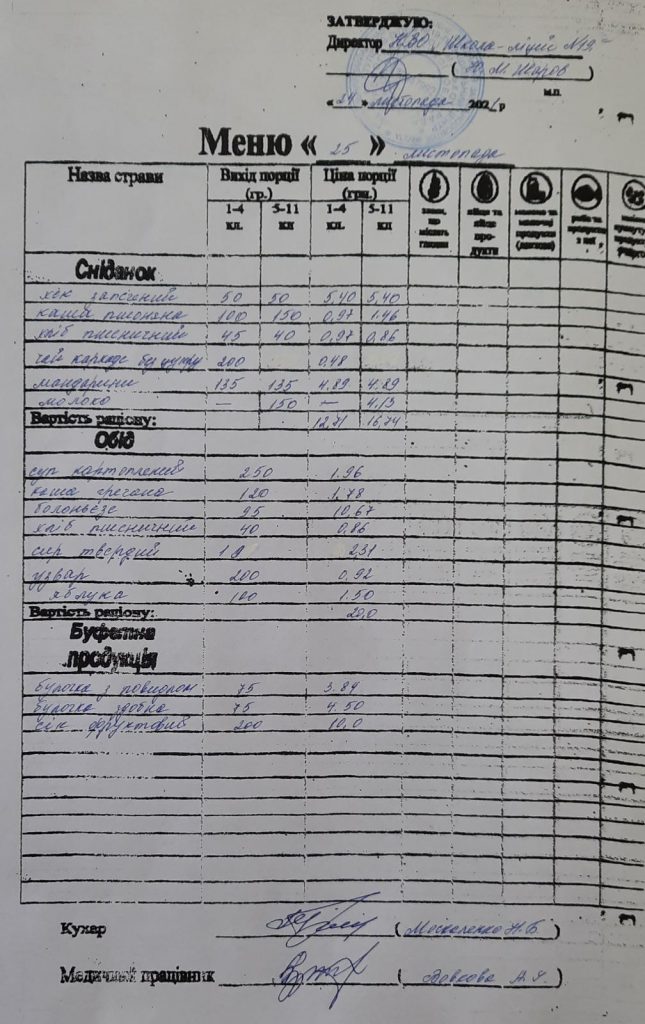 ЗАТВЕРДЖУЮ:
Директор НВО "Школа-ліцей №19"
( Ю. М. Жаров )
м.п.
« 24 » листопада 202 р
Меню « 25 » листопада
Назва страви Вихід порції (гр.) Ціна порції (грн.)
1-4 кл. 5-11 кл 1-4 кл. 5-11 кл
злаки, що містять глютен
яйця та яйце продукти
молоко та молочні продукти (лактоза)
риба та продукти з неї
Сніданок
хек запечений 50 50 5,40 5,40
каша пшоняна 100 150 0,97 1.46
хліб пшеничний 45 40 0,97 0,86
чай каркаде без цукру 200 0,48
мандарини 135 135 4.89 4.89
молоко — 150 — 4.13
Вартість раціону: 12.71 16,74
Обід
суп картопляний 250 1.96
каша гречана 120 1.78
болоньєзе 95 10,67
хліб пшеничний 40 0,86
сир твердий 19 2,31
узвар 200 0,92
яблука 100 1.50
Вартість раціону: 20,0
Буфетна
продукція
булочка з повидлом 75 3.84
булочка здобна 75 4.50
сік фруктовий 200 10,0
Кухар ( Москаленко Н.Б )
Медичний працівник ( Вовкова А. )